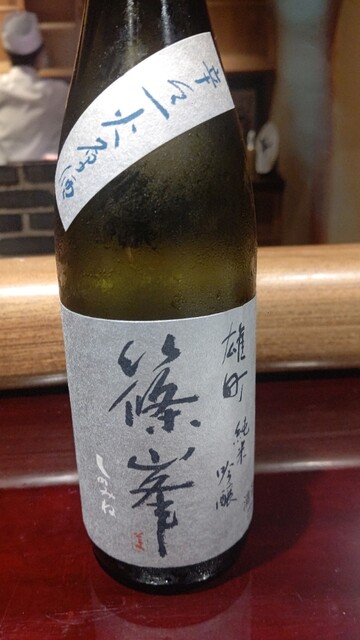 辛口一火原酒
雄町
純米
吟醸
篠峯
しのみね